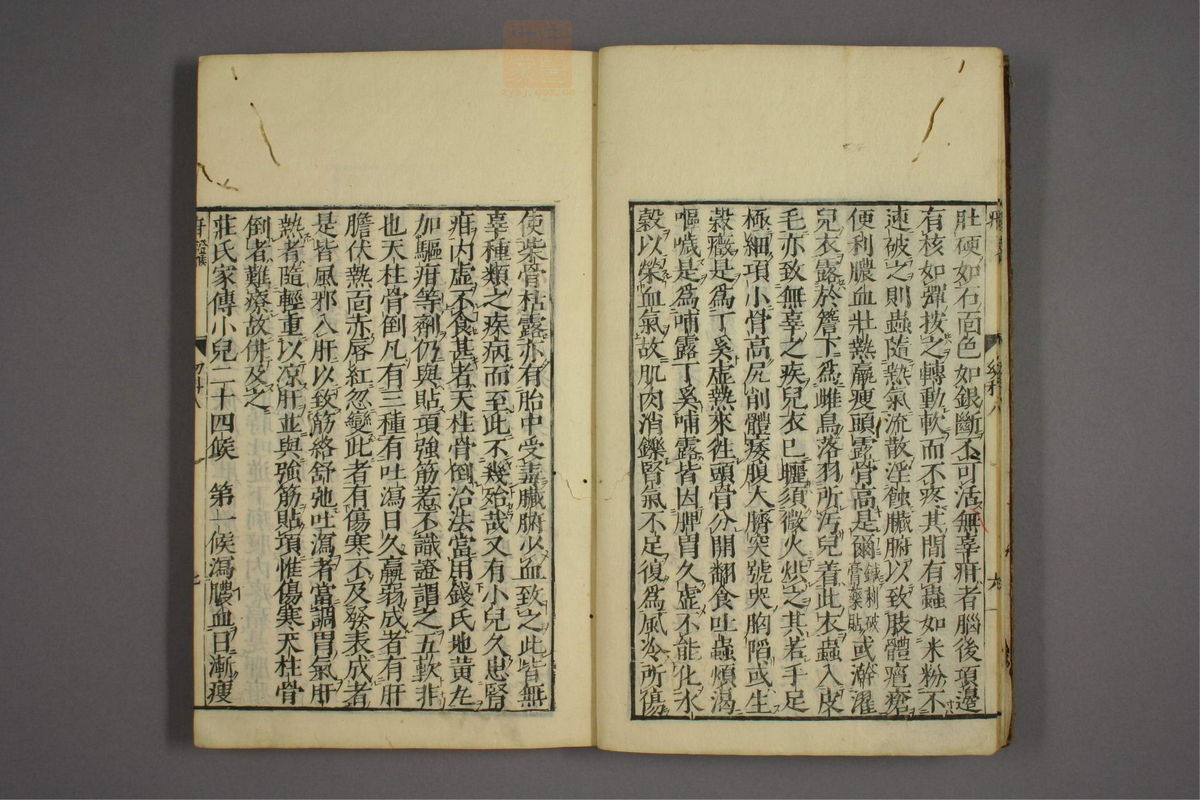 肚硬如石面色如銀斷不可活無辜疳者腦後項邊
有核如彈按之轉動軟而不疼其間有蟲如米粉不
速破之則蟲隨熱氣流散淫蝕臟腑以致肢體癰瘡
便利膿血壯熱羸瘦頭露骨高是爾鍼刺破膏藥貼或澣濯
兒衣露於簷下爲雌鳥落羽所汚兒着此衣蟲入皮
毛亦致無辜之疾兒衣巳曬須微火烘之其若手足
極細項小骨高尻削體痿腹大臍突號哭胸陷或生
穀癥是爲丁奚虛熱來徃頭骨分開翻食吐蟲煩渴
嘔噦是爲哺露丁奚哺露皆因脾胃久虛不能化水
穀以榮血氣故肌肉消鑠腎氣不足復爲風冷所傷
使柴骨枯露亦有胎中受毒臟腑少血致之此皆無
辜種類之疾病而至此不幾殆哉又有小兒久患腎
疳内虛不食甚者天柱骨倒治法當用錢氏地黄左
加驅疳等劑仍與貼項強筋惹不識證謂之五軟非
也天柱骨倒凡有三種有吐瀉日久羸弱成者有肝
膽伏熱面赤唇紅忽變此者有傷寒不及發表成者
是皆風邪入肝以致筋絡舒弛吐瀉者當調胃氣肝
熱者隨輕重以凉肝並與強筋貼項惟傷寒天柱骨
倒者難療故佛及之
莊氏家傳小兒二十四候　第一候瀉膿血日漸瘦